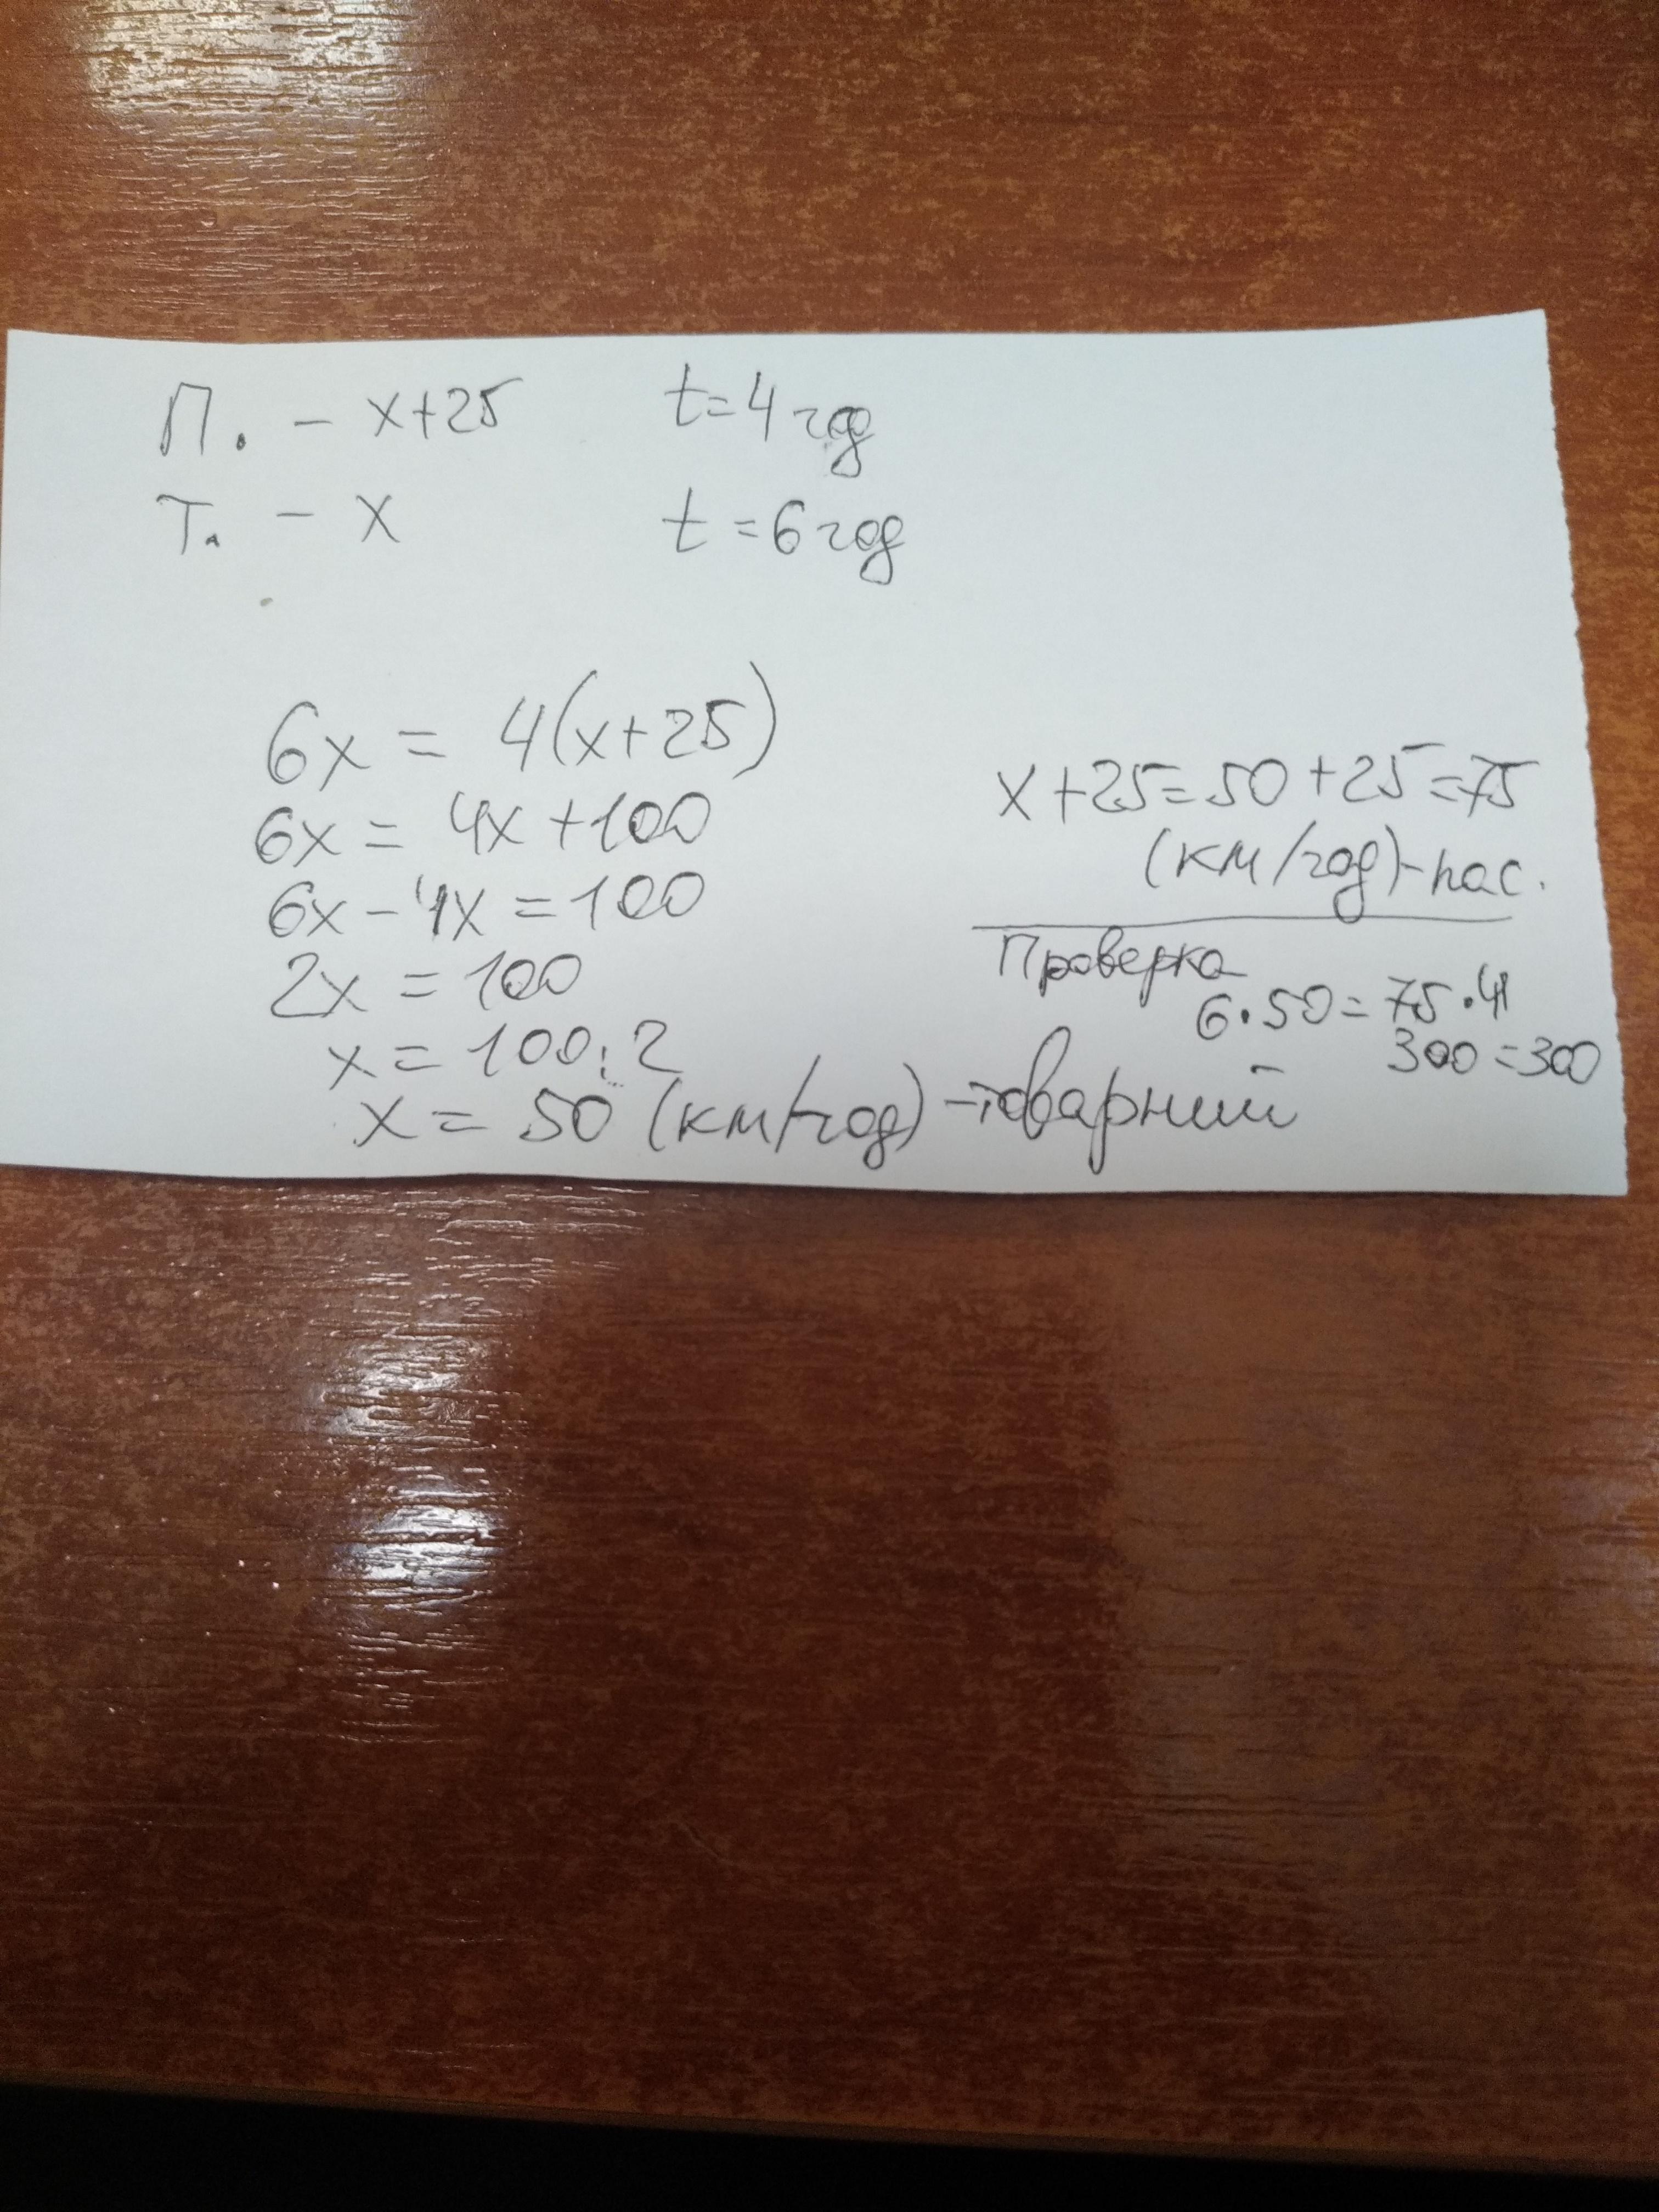 П. - x+25 t=4 год
Т. - x t=6 год
6x = 4(x+25)
6x = 4x+100
6x-4x=100
2x = 100
x = 100:2
x = 50 (км/год) - товарний
x+25=50+25=75
(км/год)-пас.
Проверка
6·50=75·4
300=300